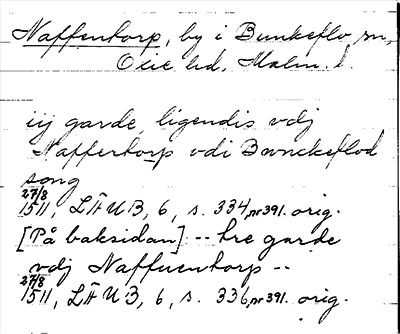 Naffentorp, by i Bunkeflo sn,
Oxie hd. Malm. l.
iij garde, ligendis vdj
Naffertorp vdi Bwnckeflod
song
27/8 1511, LÄUB, 6, s. 334, nr 391. orig.
[På baksidan] -- tre garde
vdj Naffuentorp --
27/8 1511, LÄUB, 6, s. 336, nr 391. orig.